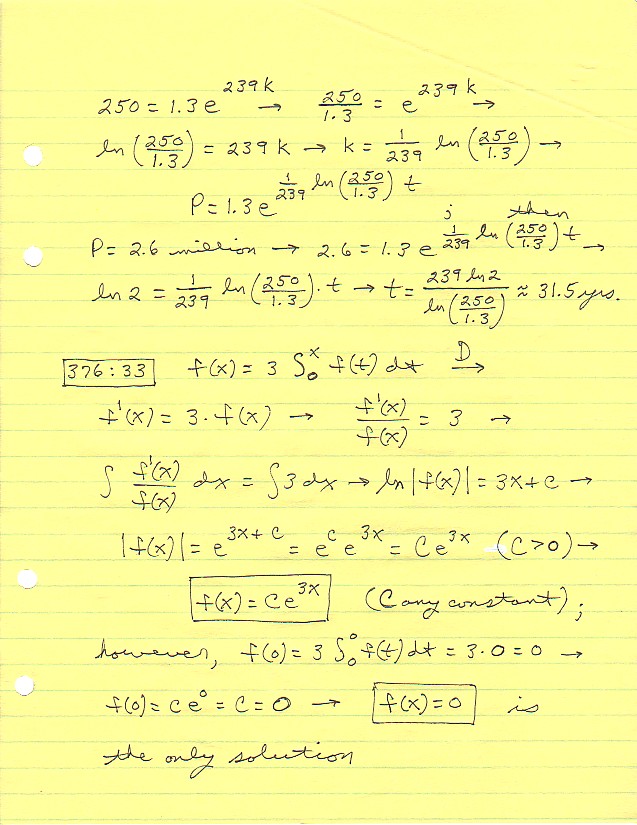 250 = 1.3 e^{239k} → 250/1.3 = e^{239k} →
ln (250/1.3) = 239 k → k = 1/239 ln (250/1.3) →
P = 1.3 e^{1/239 ln (250/1.3) t}
; then
P = 2.6 million → 2.6 = 1.3 e^{1/239 ln (250/1.3) t} →
ln 2 = 1/239 ln (250/1.3) · t → t = 239 ln 2 / ln (250/1.3) ≈ 31.5 yrs.
376 : 33 f(x) = 3 ∫₀ˣ f(t) dt D→
f'(x) = 3 · f(x) → f'(x)/f(x) = 3 →
∫ f'(x)/f(x) dx = ∫ 3 dx → ln |f(x)| = 3x + c →
|f(x)| = e^{3x + c} = e^c e^{3x} = C e^{3x} (C > 0) →
f(x) = C e^{3x} (C any constant) ;
however, f(0) = 3 ∫₀⁰ f(t) dt = 3 · 0 = 0 →
f(0) = C e⁰ = C = 0 → f(x) = 0 is
the only solution